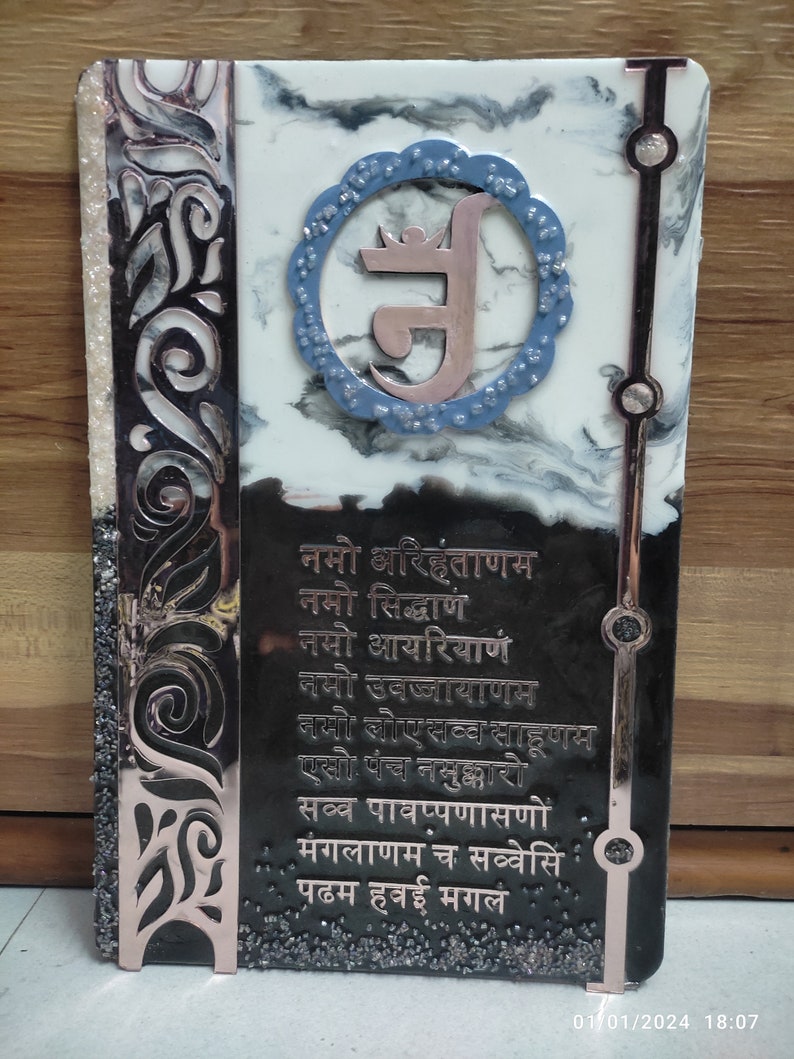 नमो अरिहंताणम
नमो सिद्धाणं
नमो आयरियाणं
नमो उवज्जायाणम
नमो लोए सव्व साहूणम
एसो पंच नमुक्कारो
सव्व पावप्पणासणों
मंगलाणम च सव्वेसि
पढम हवई मगलं
01/01/2024 18:07